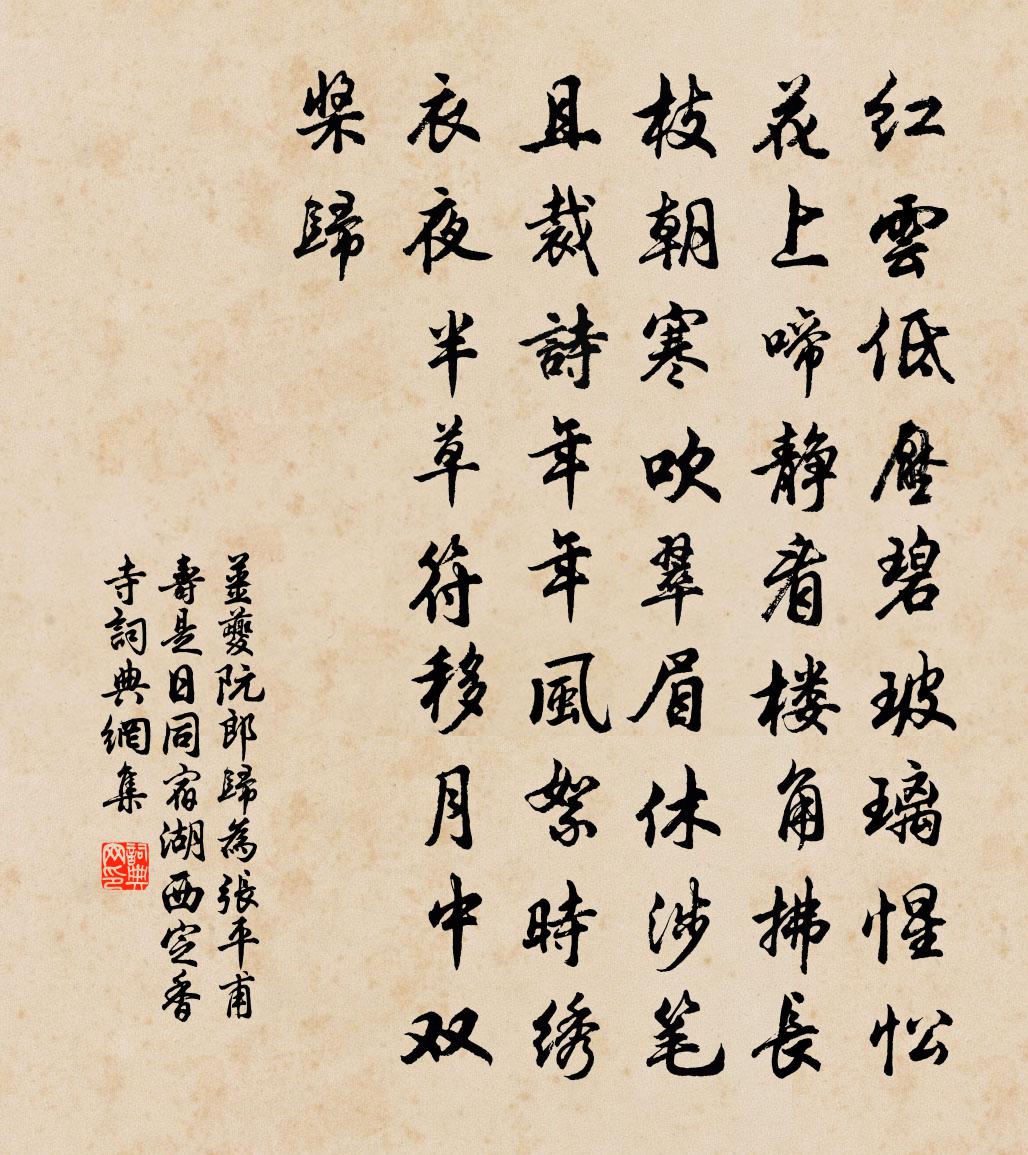 红雲低壓碧玻璃惺忪
花上啼静看楼角拂長
枝朝寒吹翠眉休涉笔
且裁詩年年風絮時绣
衣夜半草符移月中双
桨歸
姜夔阮郎歸為張平甫
壽是日同宿湖西定香
寺詞典網集
詞典網印